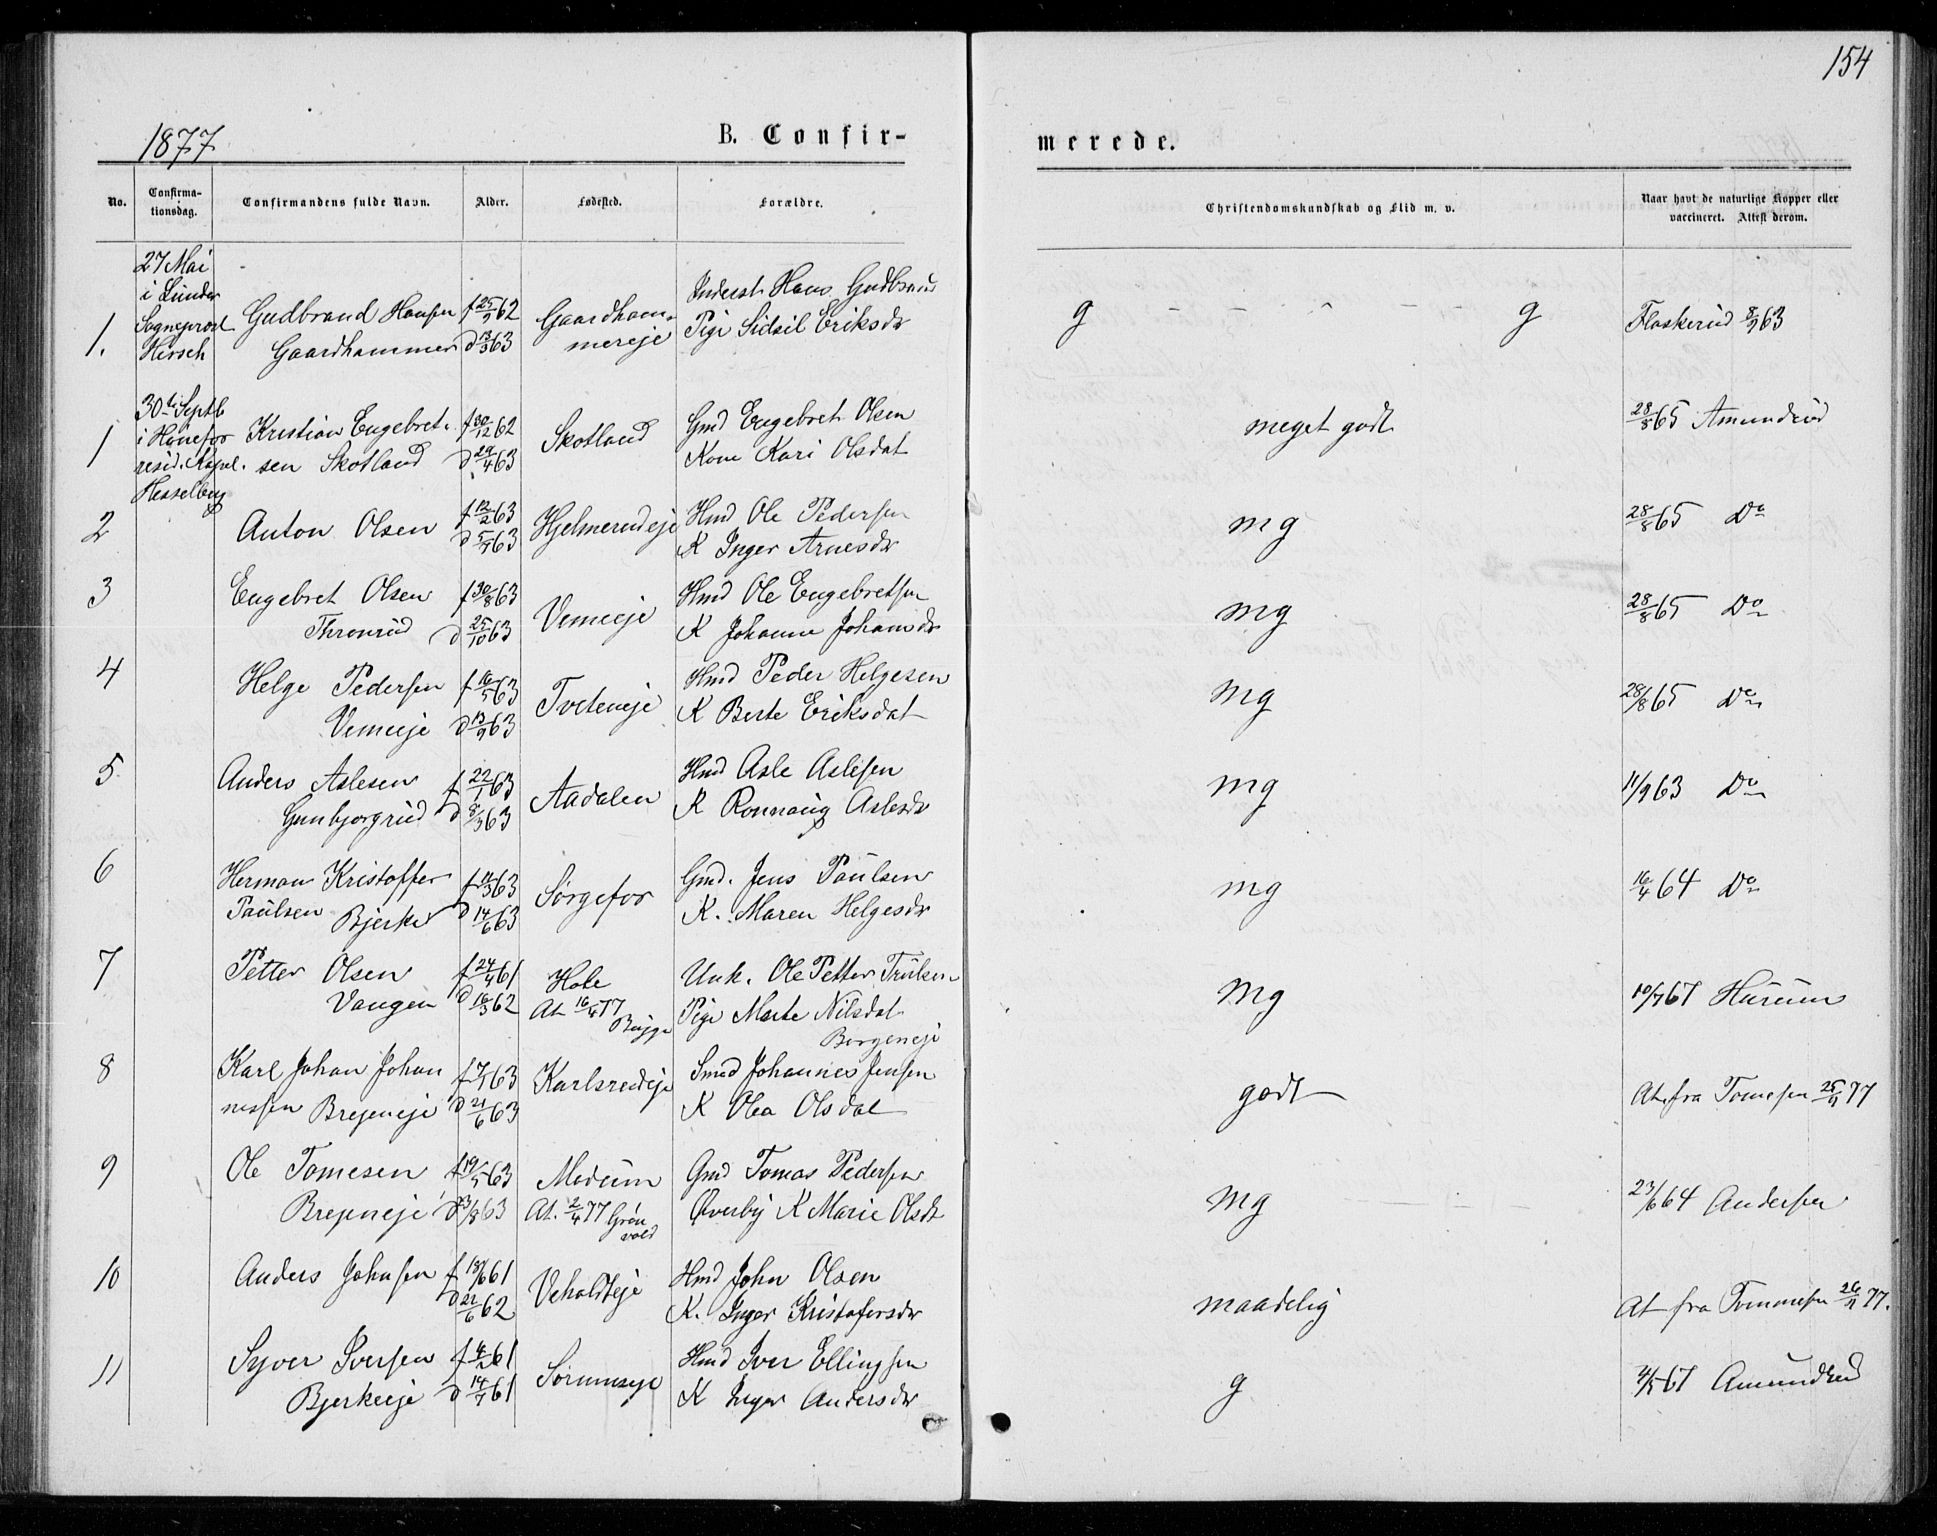 154
1877
B. Confir-
merede.
No.
Confirma-
tionsdag.
Confirmandens fulde Navn.
Alder.
Fødested.
Forældre.
Christendomskundskab og Flid m. v.
Naar havt de naturlige Kopper eller
vaccineret. Attest derom.
27 Mai
i Lunder
Sogneprost
Hirsch
1.
Gudbrand Hansen
Gaardhammer
f 25/9 62
d 63
Gaardham-
mereje
Inderst Hans Gudbrans
Pige Sidsil Eriksdr
g - - - - - g
Flaskerud 8/9 63
30te Septb
i Hønefos
resid. Kapel.
Hesselberg
1
Kristian Engebret-
sen Skotland
f 30/12 62
d 29/4 63
Skotland
Gmd Engebret Olsen
Kone Kari Olsdat
meget godt
28/8 65 Amundrud
2
Anton Olsen
f 12/2 63
d 5/7 63
Hjelmerudeje
Hmd Ole Pedersen
K Inger Arnesdr
mg
28/8 65 Do
3
Engebret Olsen
Thronrud
f 30/8 63
d 25/10 63
Vemeeje
Hmd Ole Engebretsen
K Johanne Johansdr
mg
28/8 65 Do
4
Helge Pedersen
Vemeeje
f 16/5 63
d 13/9 63
Tveteneje
Hmd Peder Helgesen
K Berte Eriksdat
mg
28/8 65 Do
5
Anders Aslesen
Gunbjorgrud
f 22/1 63
d 8/3 63
Aadalen
Hmd Asle Aslesen
K Ronnaug Aslesdr
mg
11/9 63 Do
6
Herman Kristoffer
Paulsen Bjerke
f 11/3 63
d 14/6 63
Sørgefos
Gmd. Jens Paulsen
K. Maren Helgesdr
mg
16/4 64 Do
7
Petter Olsen
Vangen
f 24/4 61
d 16/3 62
Hole
At 16/4 77
Bugge
Unk. Ole Petter Trulsen
Pige Marte Nilsdat
Borgeneje
Mg
10/7 67 Hurum
8
Karl Johan Johan
nessen Bregeneje
f 7/1 63
d 21/6 63
Karlsrudeje
Smed Johannes Jensen
K Olea Olsdat
godt
At. fra Tomesen 25/9 77
9
Ole Tomesen
Bregeneje
f 19/5 63
d 23/8 63
Modum
At. 2/4 77 Grøn
vold
Gmd Tomas Pedersen
Øverby K Marie Olsdt
mg
23/6 64 Andersen
10
Anders Johnsen
f 61
d 22/6 62
Veholdteje
Hmd John Olsen
K. Inger Kristofersdr
maadelig
At fra Tommesen 26/9 77.
11
Syver Iversen
Bjerkeeje
f 61
d 14/7 61
Sørumseje
Hmd Iver Ellingsen
K Inger Andersdr
g
4/5 67 Amundrud